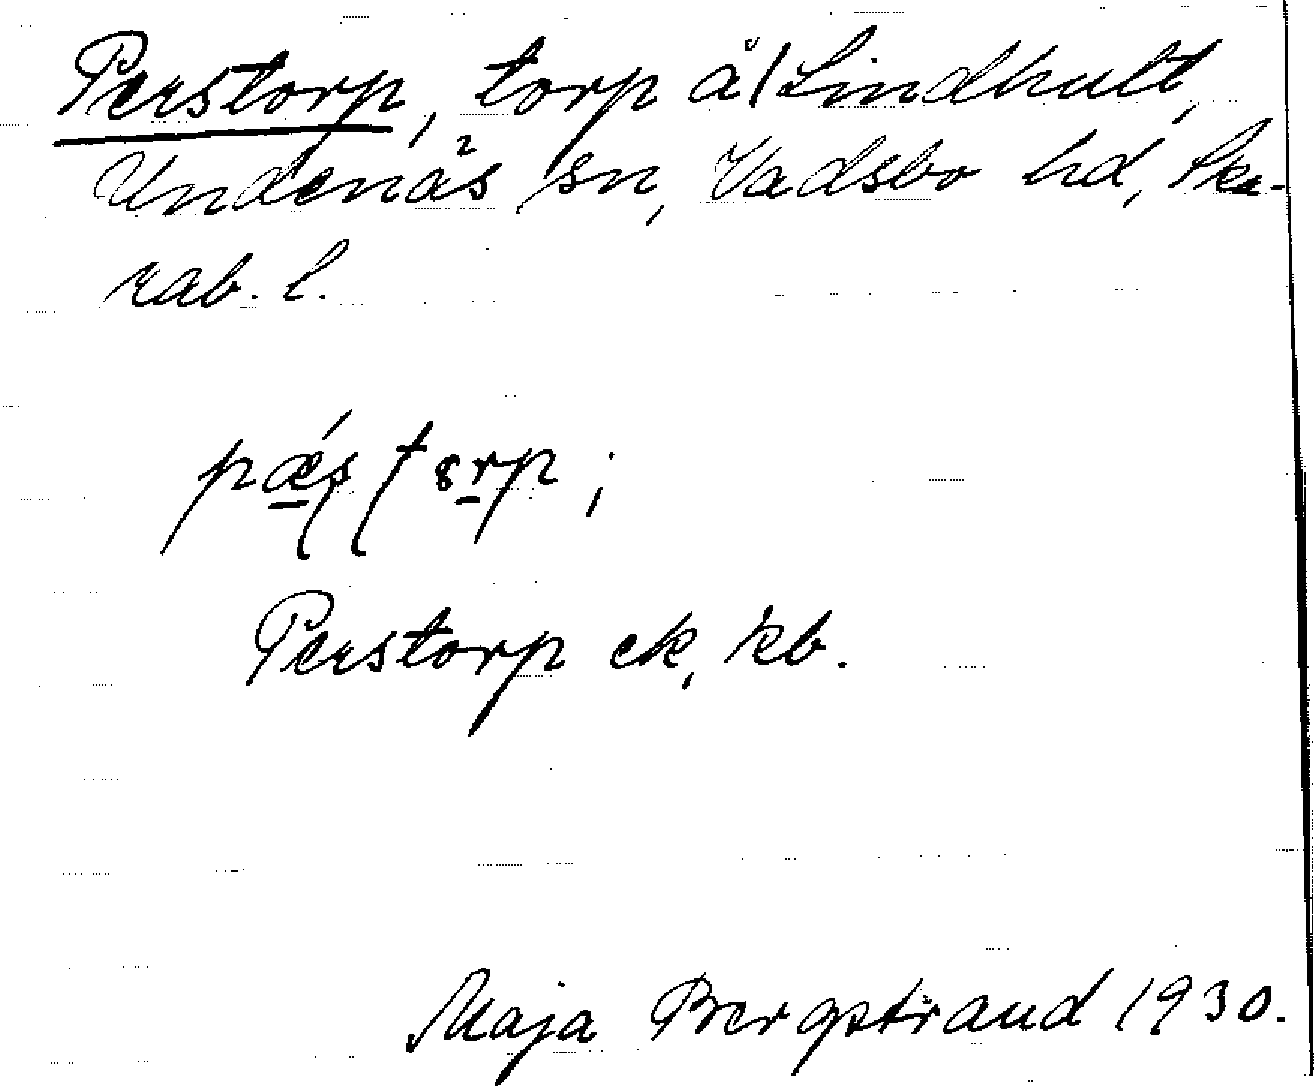 Perstorp, torp å Lindhult,
Undenäs sn, Vadsbo hd, Ska-
rab. l.
Perstorp ek, kb.
Maja Bergstrand 1930.